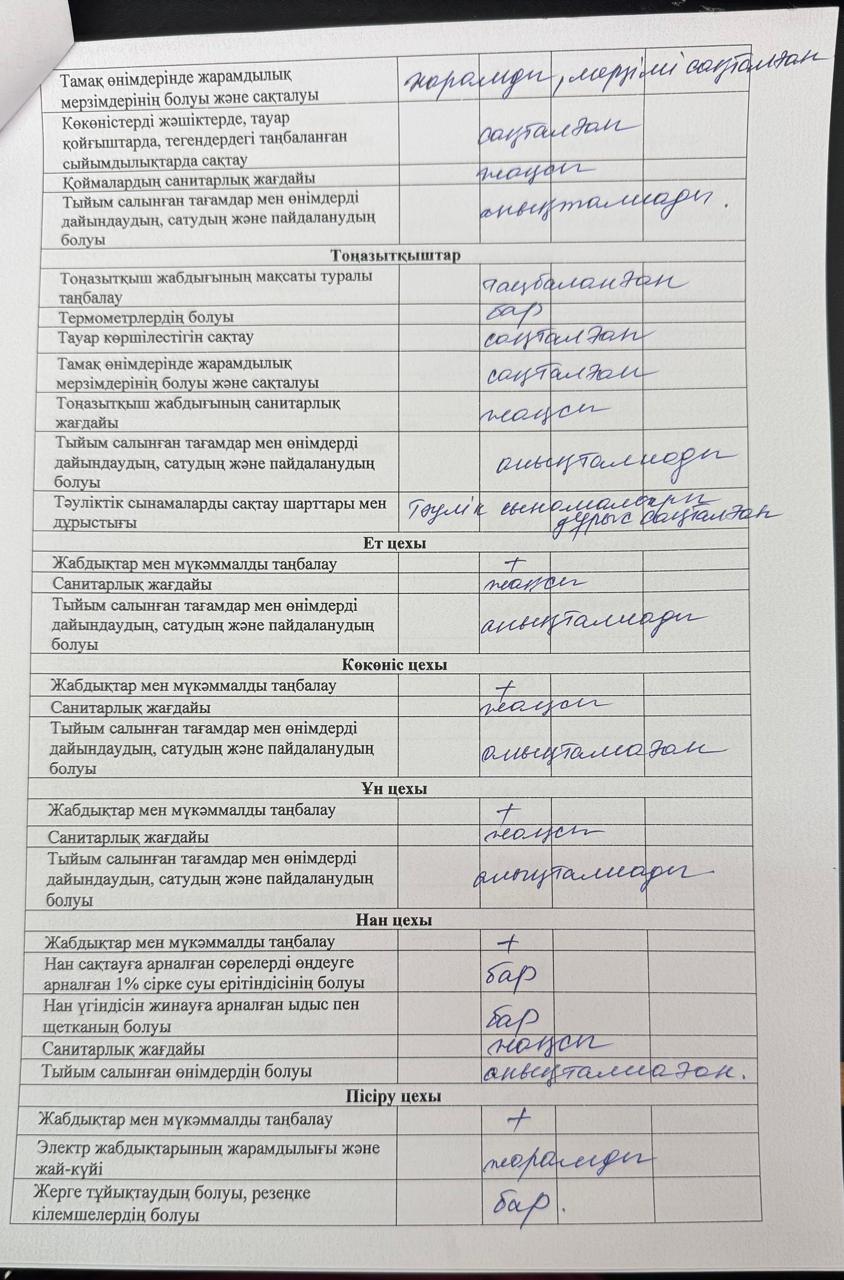 Тамақ өнімдерінде жарамдылық
мерзімдерінің болуы және сақталуы
жарамды, мерзімі сақталған
Көкөністерді жәшіктерде, тауар
қойғыштарда, тегендердегі таңбаланған
сыйымдылықтарда сақтау
сақталған
Қоймалардың санитарлық жағдайы
жақсы
Тыйым салынған тағамдар мен өнімдерді
дайындаудың, сатудың және пайдаланудың
болуы
анықталмады.
Тоңазытқыштар
Тоңазытқыш жабдығының мақсаты туралы
таңбалау
таңбаланған
Термометрлердің болуы
бар
Тауар көршілестігін сақтау
сақталған
Тамақ өнімдерінде жарамдылық
мерзімдерінің болуы және сақталуы
сақталған
Тоңазытқыш жабдығының санитарлық
жағдайы
жақсы
Тыйым салынған тағамдар мен өнімдерді
дайындаудың, сатудың және пайдаланудың
болуы
анықталмады
Тәуліктік сынамаларды сақтау шарттары мен
дұрыстығы
Тәулік сынамалары
дұрыс сақталған
Ет цехы
Жабдықтар мен мүкәммалды таңбалау
+
Санитарлық жағдайы
жақсы
Тыйым салынған тағамдар мен өнімдерді
дайындаудың, сатудың және пайдаланудың
болуы
анықталмады
Көкөніс цехы
Жабдықтар мен мүкәммалды таңбалау
+
Санитарлық жағдайы
жақсы
Тыйым салынған тағамдар мен өнімдерді
дайындаудың, сатудың және пайдаланудың
болуы
анықталмаған
Ұн цехы
Жабдықтар мен мүкәммалды таңбалау
+
Санитарлық жағдайы
жақсы
Тыйым салынған тағамдар мен өнімдерді
дайындаудың, сатудың және пайдаланудың
болуы
анықталмады
Нан цехы
Жабдықтар мен мүкәммалды таңбалау
+
Нан сақтауға арналған сөрелерді өңдеуге
арналған 1% сірке суы ерітіндісінің болуы
бар
Нан үгіндісін жинауға арналған ыдыс пен
щетканың болуы
бар
Санитарлық жағдайы
жақсы
Тыйым салынған өнімдердің болуы
анықталмаған.
Пісіру цехы
Жабдықтар мен мүкәммалды таңбалау
+
Электр жабдықтарының жарамдылығы және
жай-күйі
жарамды
Жерге тұйықтаудың болуы, резеңке
кілемшелердің болуы
бар.